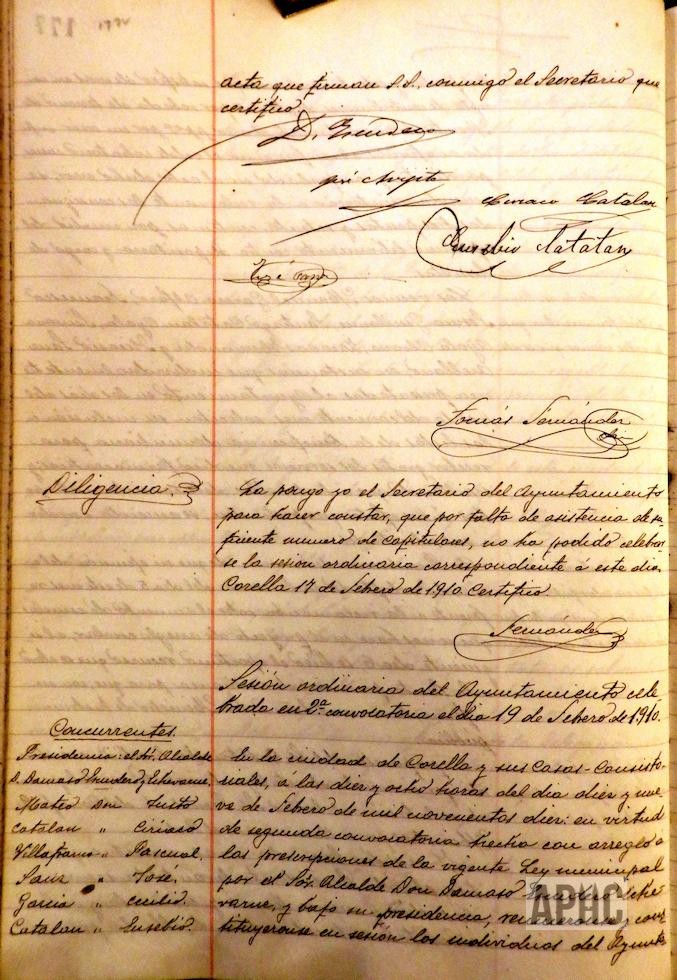 acta que firman S.S. conmigo el Secretario que
certifico.
D. Escudero
José Arigita
Ciriaco Catalan
Eusebio Catalan
José Sanz
Tomás Fernández
Diligencia.
La pongo yo el Secretario del Ayuntamiento
para hacer constar, que por falta de asistencia de su
ficiente numero de capitulares, no ha podido celebrar
se la sesión ordinaria correspondiente á este dia.
Corella 17 de Febrero de 1910. Certifico.
Fernández
Sesión ordinaria del Ayuntamiento cele
brada en 2ª convocatoria el dia 19 de Febrero de 1910.
Concurrentes.
Presidencia: el Sr. Alcalde
D. Damaso Escudero y Echevarne.
Mateo Don Justo
Catalan " Ciriaco
Villafranca " Pascual.
Sanz " Jose.
Garcia " Cecilio.
Catalan " Eusebio.
En la ciudad de Corella y sus Casas-Consisto-
riales, a las diez y ocho horas del dia diez y nue
ve de Febrero de mil novecientos diez: en virtud
de segunda convocatoria hecha con arreglo a
las prescripciones de la vigente Ley municipal
por el Sor. Alcalde Don Damaso Escudero Eche
varne, y bajo su presidencia, y cons
tituyeronse en sesión los individuos del Ayunta
APHC